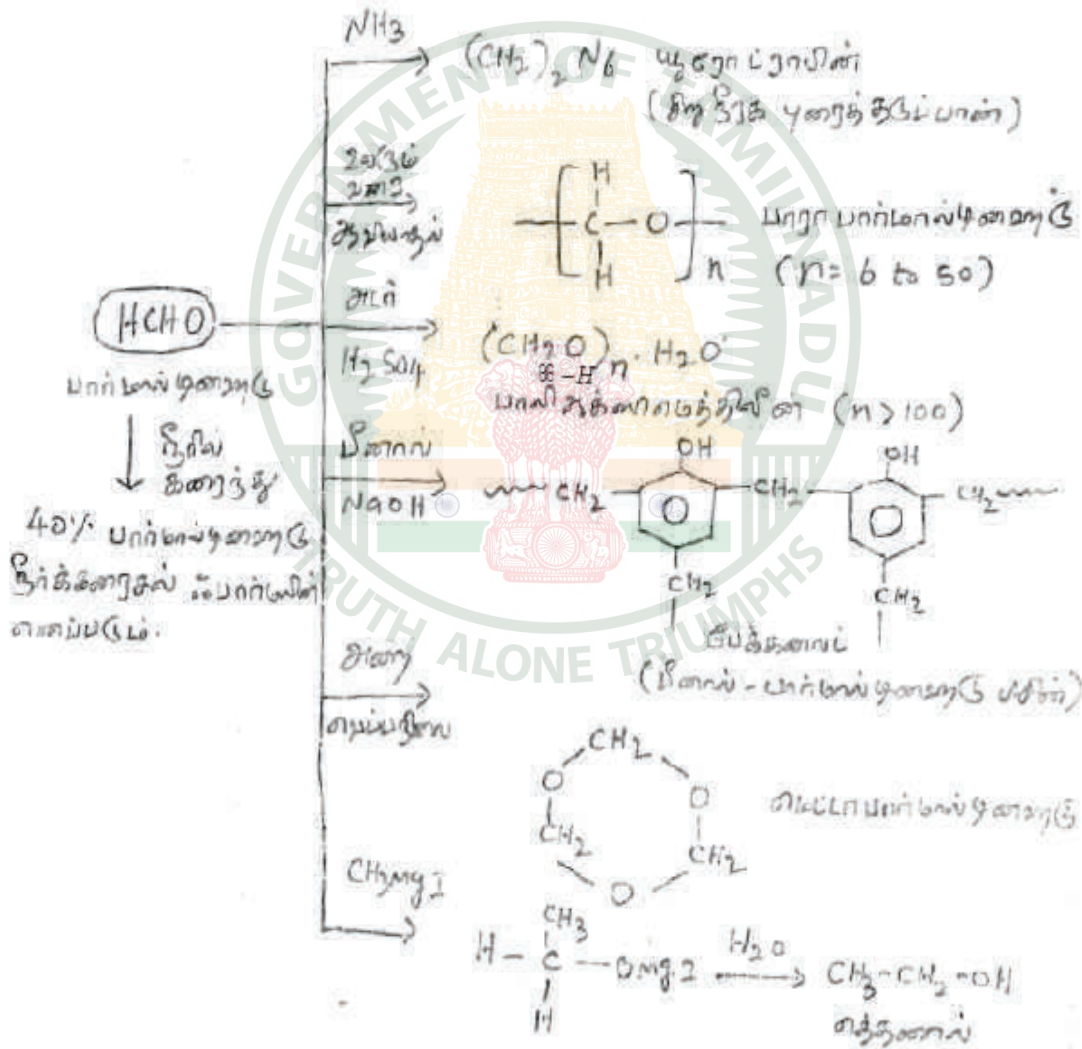 NH3
(CH2)2 N6 யூரோட்ராபின்
(சிறுநீரக புரைத்தடுப்பான்)
உலரும்
வரை
ஆவியாதல்
H
C — O
H
n
பாராபார்மால்டிஹைடு
(n = 6 to 50)
HCHO
பார்மால்டிஹைடு
அடர்
H2SO4
(CH2O)n · H2O
-H
பாலிஆக்ஸிமெத்திலீன் (n > 100)
நீரில்
கரைந்து
40% பார்மால்டிஹைடு
நீர்க்கரைசல் ஃபார்மலின்
எனப்படும்.
பீனால்
NaOH
OH
OH
CH2
CH2
CH2
CH2
CH2
பேக்கலைட்
(பீனால் - பார்மால்டிஹைடு பிசின்)
அறை
வெப்பநிலை
CH2
O
O
CH2
CH2
O
மெட்டாபார்மால்டிஹைடு
CH3MgI
CH3
H – C — OMgI
H
H2O
CH3-CH2-OH
எத்தனால்
GOVERNMENT OF TAMILNADU
TRUTH ALONE TRIUMPHS